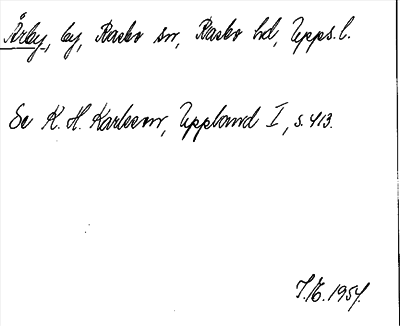 Årby, by, Rasbo sn, Rasbo hd, Upps. l.
Se K. H. Karlsson, Uppland I, s. 413.
1954.